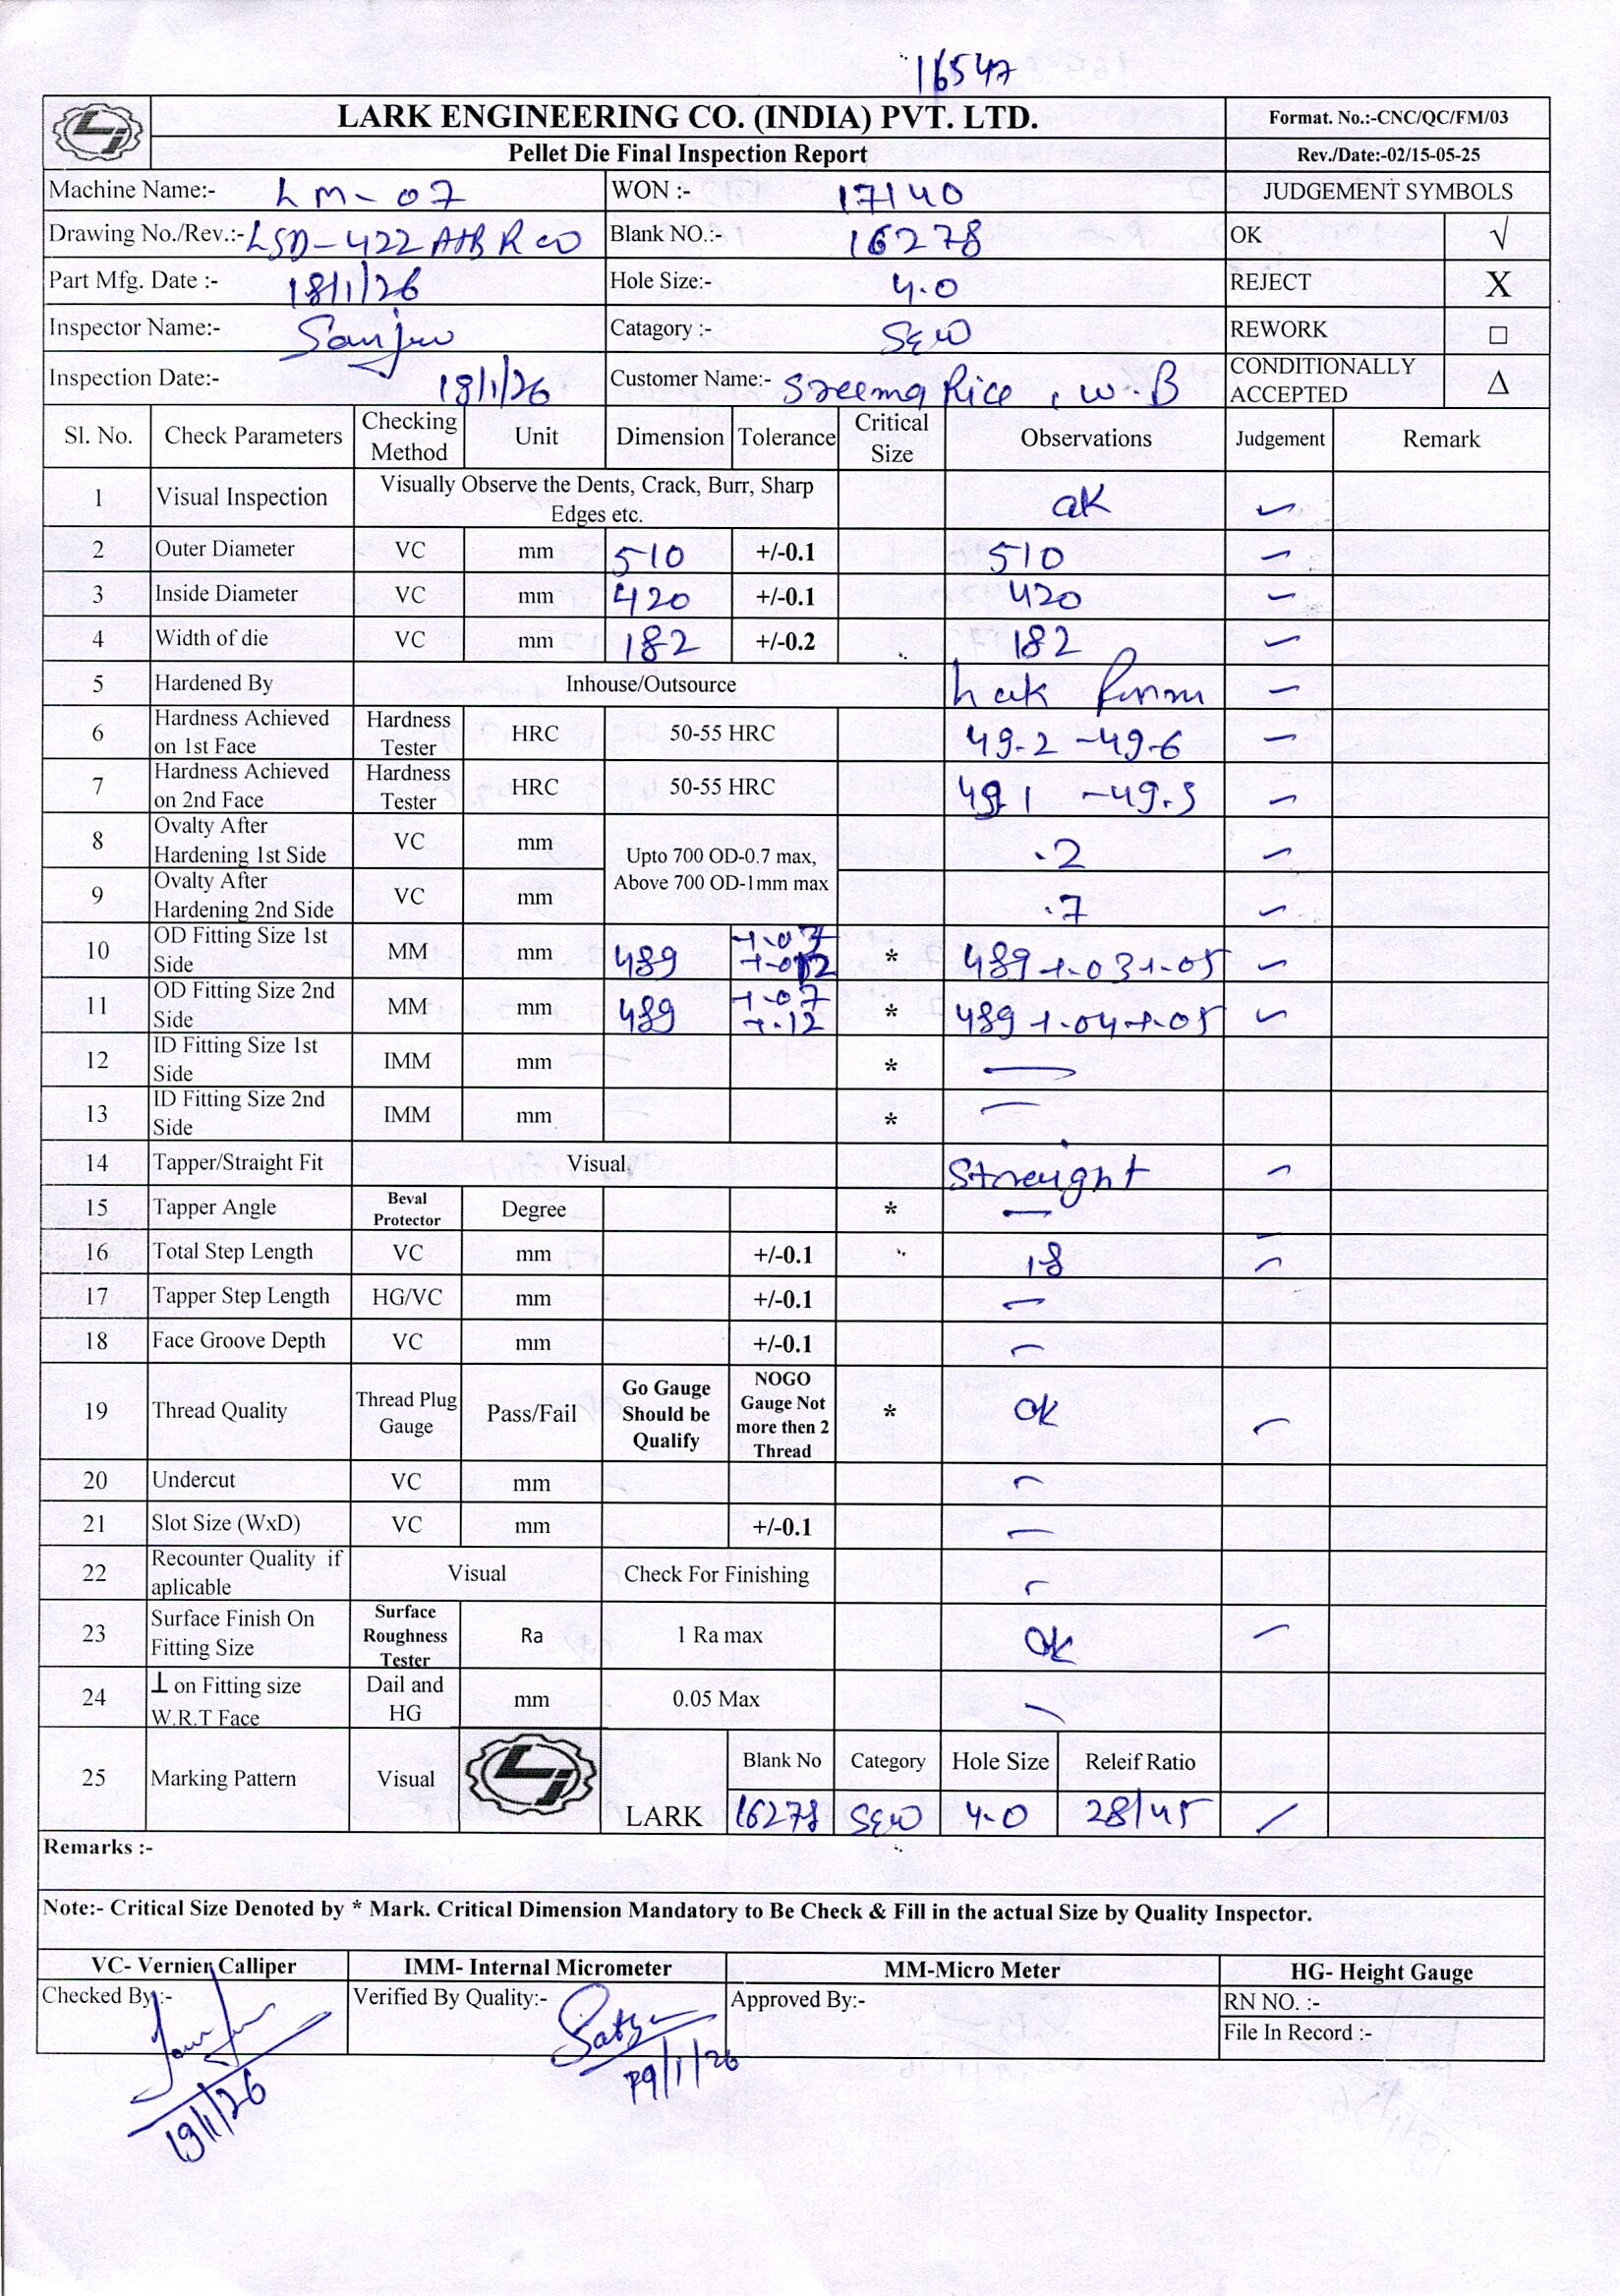 16547
LARK ENGINEERING CO. (INDIA) PVT. LTD.
Format. No.:-CNC/QC/FM/03
Pellet Die Final Inspection Report
Rev./Date:-02/15-05-25
Machine Name:- LM-07 WON :- 17140 JUDGEMENT SYMBOLS
Drawing No./Rev.:- LSD-422 Blank NO.:- 16278 OK √
Part Mfg. Date :- 18/1/26 Hole Size:- 4.0 REJECT X
Inspector Name:- Sanjeev Catagory :- SEW REWORK □
Inspection Date:- 19/1/26 Customer Name:- Sreema Rice, W.B CONDITIONALLY ACCEPTED Δ
Sl. No. Check Parameters Checking Method Unit Dimension Tolerance Critical Size Observations Judgement Remark
1 Visual Inspection Visually Observe the Dents, Crack, Burr, Sharp Edges etc. ok
2 Outer Diameter VC mm 510 +/-0.1 510
3 Inside Diameter VC mm 420 +/-0.1 420
4 Width of die VC mm 182 +/-0.2 182
5 Hardened By Inhouse/Outsource
6 Hardness Achieved on 1st Face Hardness Tester HRC 50-55 HRC 49.2 -49.6
7 Hardness Achieved on 2nd Face Hardness Tester HRC 50-55 HRC 49.1 -49.5
8 Ovalty After Hardening 1st Side VC mm Upto 700 OD-0.7 max, Above 700 OD-1mm max .2
9 Ovalty After Hardening 2nd Side VC mm .7
10 OD Fitting Size 1st Side MM mm 489 +.07 * 489 +.03+.05
11 OD Fitting Size 2nd Side MM mm 489 +.07 +.12 * 489 +.04+.05
12 ID Fitting Size 1st Side IMM mm * —
13 ID Fitting Size 2nd Side IMM mm * —
14 Tapper/Straight Fit Visual Streight
15 Tapper Angle Beval Protector Degree * —
16 Total Step Length VC mm +/-0.1 18
17 Tapper Step Length HG/VC mm +/-0.1 —
18 Face Groove Depth VC mm +/-0.1 —
19 Thread Quality Thread Plug Gauge Pass/Fail Go Gauge Should be Qualify NOGO Gauge Not more then 2 Thread * ok
20 Undercut VC mm —
21 Slot Size (WxD) VC mm +/-0.1 —
22 Recounter Quality if aplicable Visual Check For Finishing —
23 Surface Finish On Fitting Size Surface Roughness Tester Ra 1 Ra max ok
24 ⊥ on Fitting size W.R.T Face Dail and HG mm 0.05 Max —
25 Marking Pattern Visual LARK Blank No Category Hole Size Releif Ratio
16278 SEW 4.0 28/45
Remarks :-
Note:- Critical Size Denoted by * Mark. Critical Dimension Mandatory to Be Check & Fill in the actual Size by Quality Inspector.
VC- Vernier Calliper IMM- Internal Micrometer MM-Micro Meter HG- Height Gauge
Checked By:- Verified By Quality:- Approved By:- RN NO. :-
File In Record :-
19/1/26 19/1/26